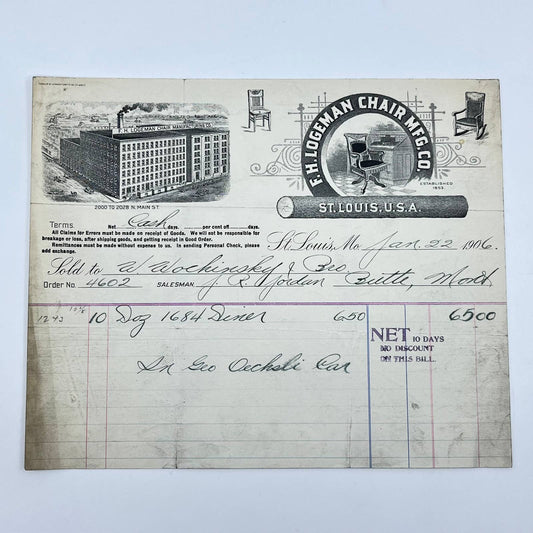 F.H. LOGEMAN CHAIR MANUFACTURING CO.
2000 TO 2028 N. MAIN ST.
F.H. LOGEMAN CHAIR MFG. CO.
ESTABLISHED
ST. LOUIS, U.S.A.
Terms. Net Cash days. per cent off days.
All Claims for Errors must be made on receipt of Goods. We will not be responsible for
breakage or loss, after shipping goods, and getting receipt in Good Order.
Remittances must be made without expense to us. In sending Personal Check, please
add exchange.
St. Louis, Mo. Jan. 22 1906.
Sold to W Wochinsky & Bro
Order No. 4602 SALESMAN J R Jordan Butte, Mont
10 Doz 1684 Diner 650 6500
NET 10 DAYS
NO DISCOUNT
ON THIS BILL.
In Geo Oechsli Car